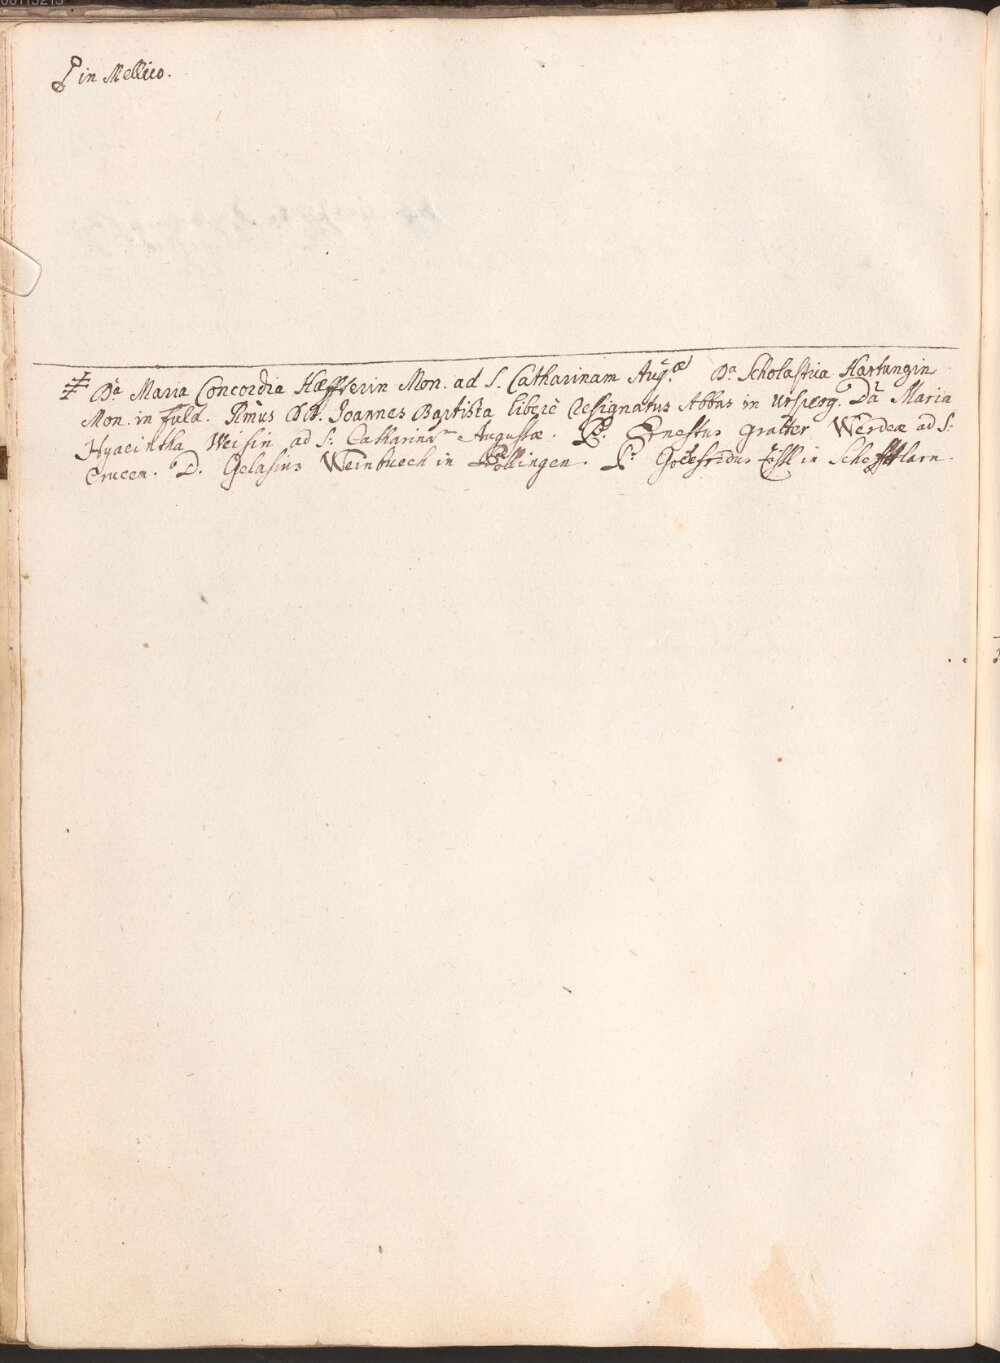 in Mellico.
Da Maria Concordia Hæffterin Mon. ad S. Catharinam Aug.æ Da Scholastica Hartungin
Mon. in fuld. Rmus DD. Joannes Baptista liberè resignatus Abbas in Ursperg. Da Maria
Hyacintha Weisin ad S: Catharinam Augustæ. P. Ernestus gratter Werdeæ ad S:
Crucem. D. Gelasius Weinbuech in Pollingen. P. Godefridus in Schefftlarn.